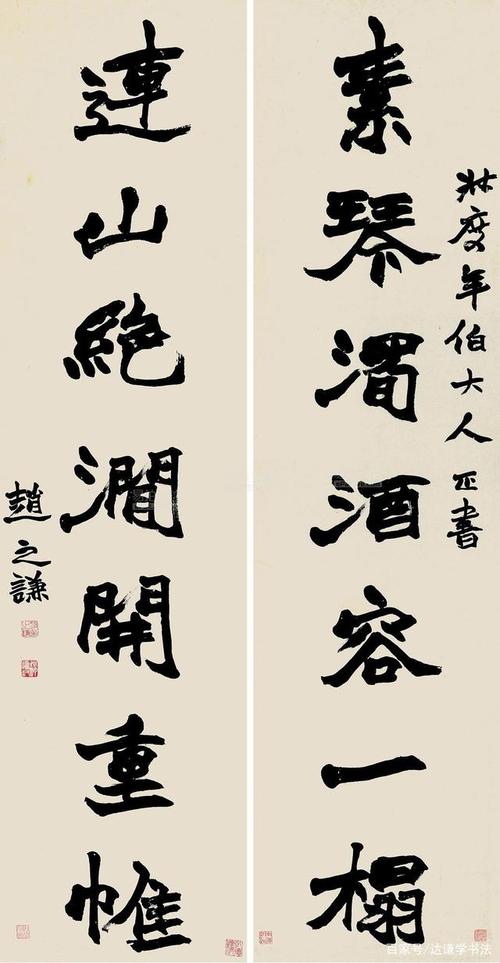 度年伯大人正書
素琴濁酒容一榻
連山絶澗開重帷
趙之謙
百家号/达谦学书法